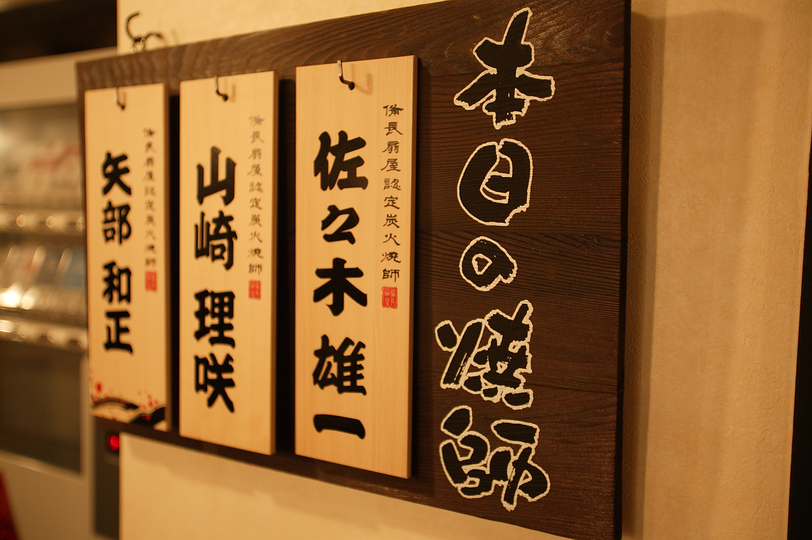 本日の焼師
備長扇屋認定炭火焼師
佐々木 雄一
備長扇屋認定炭火焼師
山崎 理咲
備長扇屋認定炭火焼師
矢部 和正